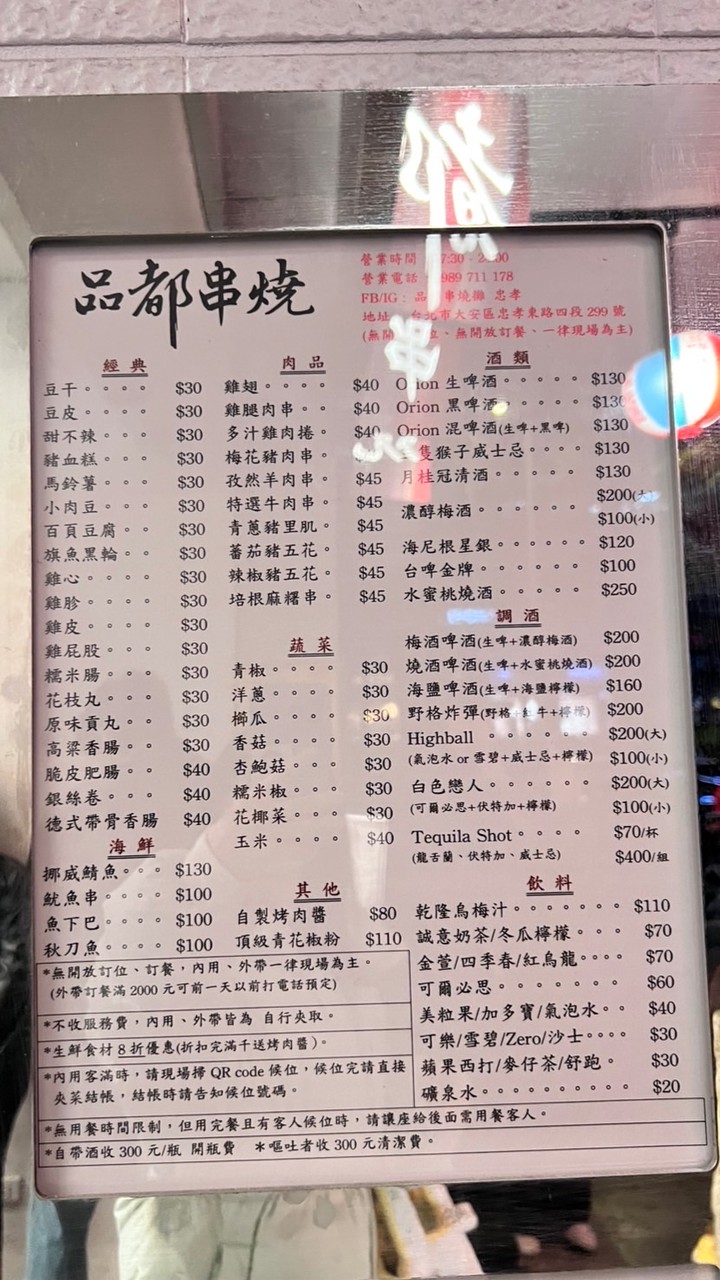 品都串燒
營業時間 7:30 - 2 :00
營業電話 989 711 178
FB/IG : 品 串燒攤 忠孝
地址 台北市大安區忠孝東路四段 299 號
(無開 位、無開放訂餐、一律現場為主)
經典
豆干。。。。 $30
豆皮。。。。 $30
甜不辣。。。 $30
豬血糕。。。 $30
馬鈴薯。。。 $30
小肉豆。。。 $30
百頁豆腐。。 $30
旗魚黑輪。。 $30
雞心。。。。 $30
雞胗。。。。 $30
雞皮。。。。 $30
雞屁股。。。 $30
糯米腸。。。 $30
花枝丸。。。 $30
原味貢丸。。 $30
高粱香腸。。 $30
脆皮肥腸。。 $40
銀絲卷。。。 $40
德式帶骨香腸 $40
海鮮
挪威鯖魚。。。 $130
魷魚串。。。。 $100
魚下巴。。。。 $100
秋刀魚。。。。 $100
肉品
雞翅。。。。 $40
雞腿肉串。。 $40
多汁雞肉捲。 $40
梅花豬肉串。
孜然羊肉串。 $45
特選牛肉串。 $45
青蔥豬里肌。 $45
蕃茄豬五花。 $45
辣椒豬五花。 $45
培根麻糬串。 $45
蔬菜
青椒。。。。 $30
洋蔥。。。。 $30
櫛瓜。。。。 $30
香菇。。。。 $30
杏鮑菇。。。 $30
糯米椒。。。 $30
花椰菜。。。 $30
玉米。。。。 $40
其他
自製烤肉醬 $80
頂級青花椒粉 $110
酒類
Orion 生啤酒。。。。。 $130
Orion 黑啤酒。。。。。 $130
Orion 混啤酒(生啤+黑啤) $130
隻猴子威士忌。。。。 $130
月桂冠清酒。。。。。 $130
濃醇梅酒。。。。。。 $200(大)
$100(小)
海尼根星銀。。。。。 $120
台啤金牌。。。。。。 $100
水蜜桃燒酒。。。。。 $250
調酒
梅酒啤酒(生啤+濃醇梅酒) $200
燒酒啤酒(生啤+水蜜桃燒酒) $200
海鹽啤酒(生啤+海鹽檸檬) $160
野格炸彈(野格+紅牛+檸檬) $200
Highball 。。。。。。 $200(大)
(氣泡水 or 雪碧+威士忌+檸檬) $100(小)
白色戀人。。。。。。 $200(大)
(可爾必思+伏特加+檸檬) $100(小)
Tequila Shot。。。。 $70/杯
(龍舌蘭、伏特加、威士忌) $400/組
飲料
乾隆烏梅汁。。。。。。。 $110
誠意奶茶/冬瓜檸檬。。。 $70
金萱/四季春/紅烏龍。。。。 $70
可爾必思。。。。。。。 $60
美粒果/加多寶/氣泡水。。 $40
可樂/雪碧/Zero/沙士。。。。 $30
蘋果西打/麥仔茶/舒跑。 $30
礦泉水。。。。。。。。。。 $20
*無開放訂位、訂餐，內用、外帶一律現場為主。
(外帶訂餐滿 2000 元可前一天以前打電話預定)
*不收服務費，內用、外帶皆為 自行夾取。
*生鮮食材 8 折優惠(折扣完滿千送烤肉醬)。
*內用客滿時，請現場掃 QR code 候位，候位完請直接
夾菜結帳，結帳時請告知候位號碼。
*無用餐時間限制，但用完餐且有客人候位時，請讓座給後面需用餐客人。
*自帶酒收 300 元/瓶 開瓶費 *嘔吐者收 300 元清潔費。